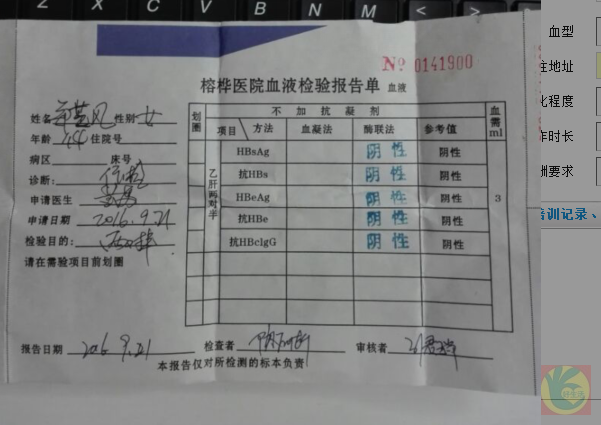 Z X C V B N M < >
№ 0141900
榕桦医院血液检验报告单 血液
姓名 性别 女
年龄 44 住院号
病区 床号
诊断:
申请医生
申请日期 2016.9.21
检验目的:
请在需验项目前划圈
划圈 不加抗凝剂 血需ml
项目 方法 血凝法 酶联法 参考值
乙肝两对半 3
HBsAg 阴性 阴性
抗HBs 阴性 阴性
HBeAg 阴性 阴性
抗HBe 阴性 阴性
抗HBcIgG 阴性 阴性
报告日期 2016.9.21 检查者 审核者
本报告仅对所检测的标本负责
血型
住地址
化程度
作时长
洲要求
培训记录、